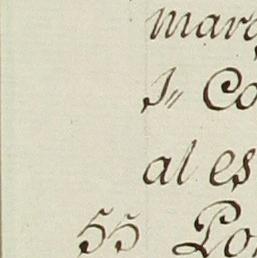 marq
1" Co
al es
55 Por